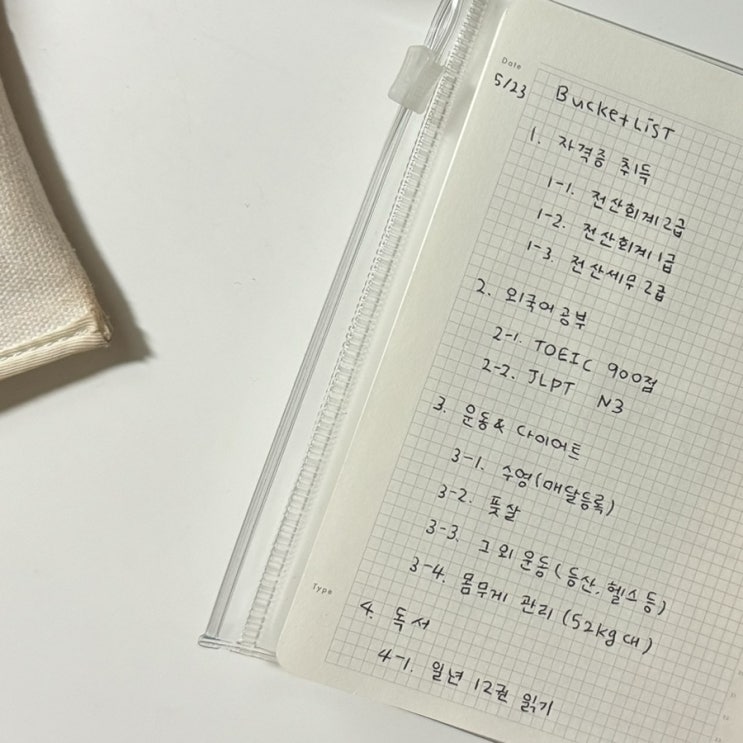 Date
5/23
BucketLiST
1. 자격증 취득
1-1. 전산회계2급
1-2. 전산회계1급
1-3. 전산세무2급
2. 외국어공부
2-1. TOEIC 900점
2-2. JLPT N3
3. 운동& 다이어트
3-1. 수영(매달등록)
3-2. 풋살
3-3. 그외운동(등산,헬스등)
3-4. 몸무게 관리(52kg대)
Type
4. 독서
4-1. 일년 12권 읽기